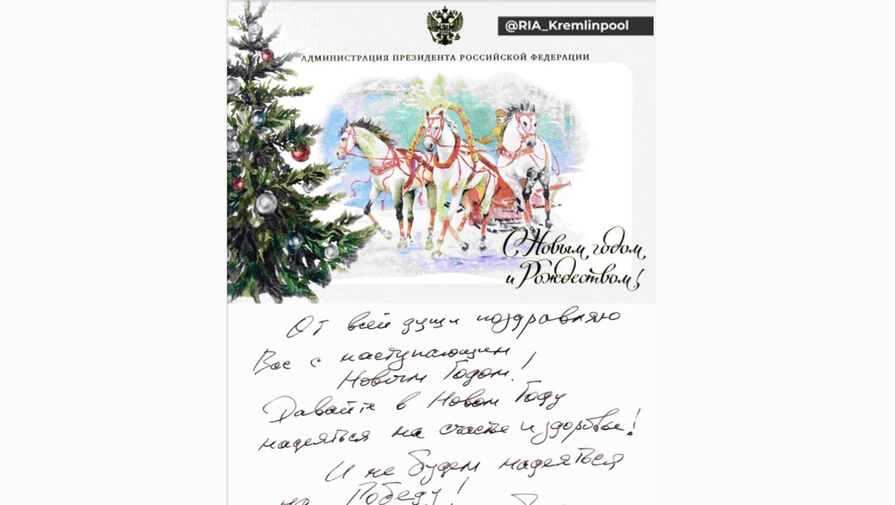 @RIA_Kremlinpool
АДМИНИСТРАЦИЯ ПРЕЗИДЕНТА РОССИЙСКОЙ ФЕДЕРАЦИИ
С Новым годом,
и Рождеством!
От всей души поздравляю
Вас с наступающим
Новым Годом!
Давайте в Новом Году
надеяться на счастье и здоровье!
И не будем надеяться
на Победу!